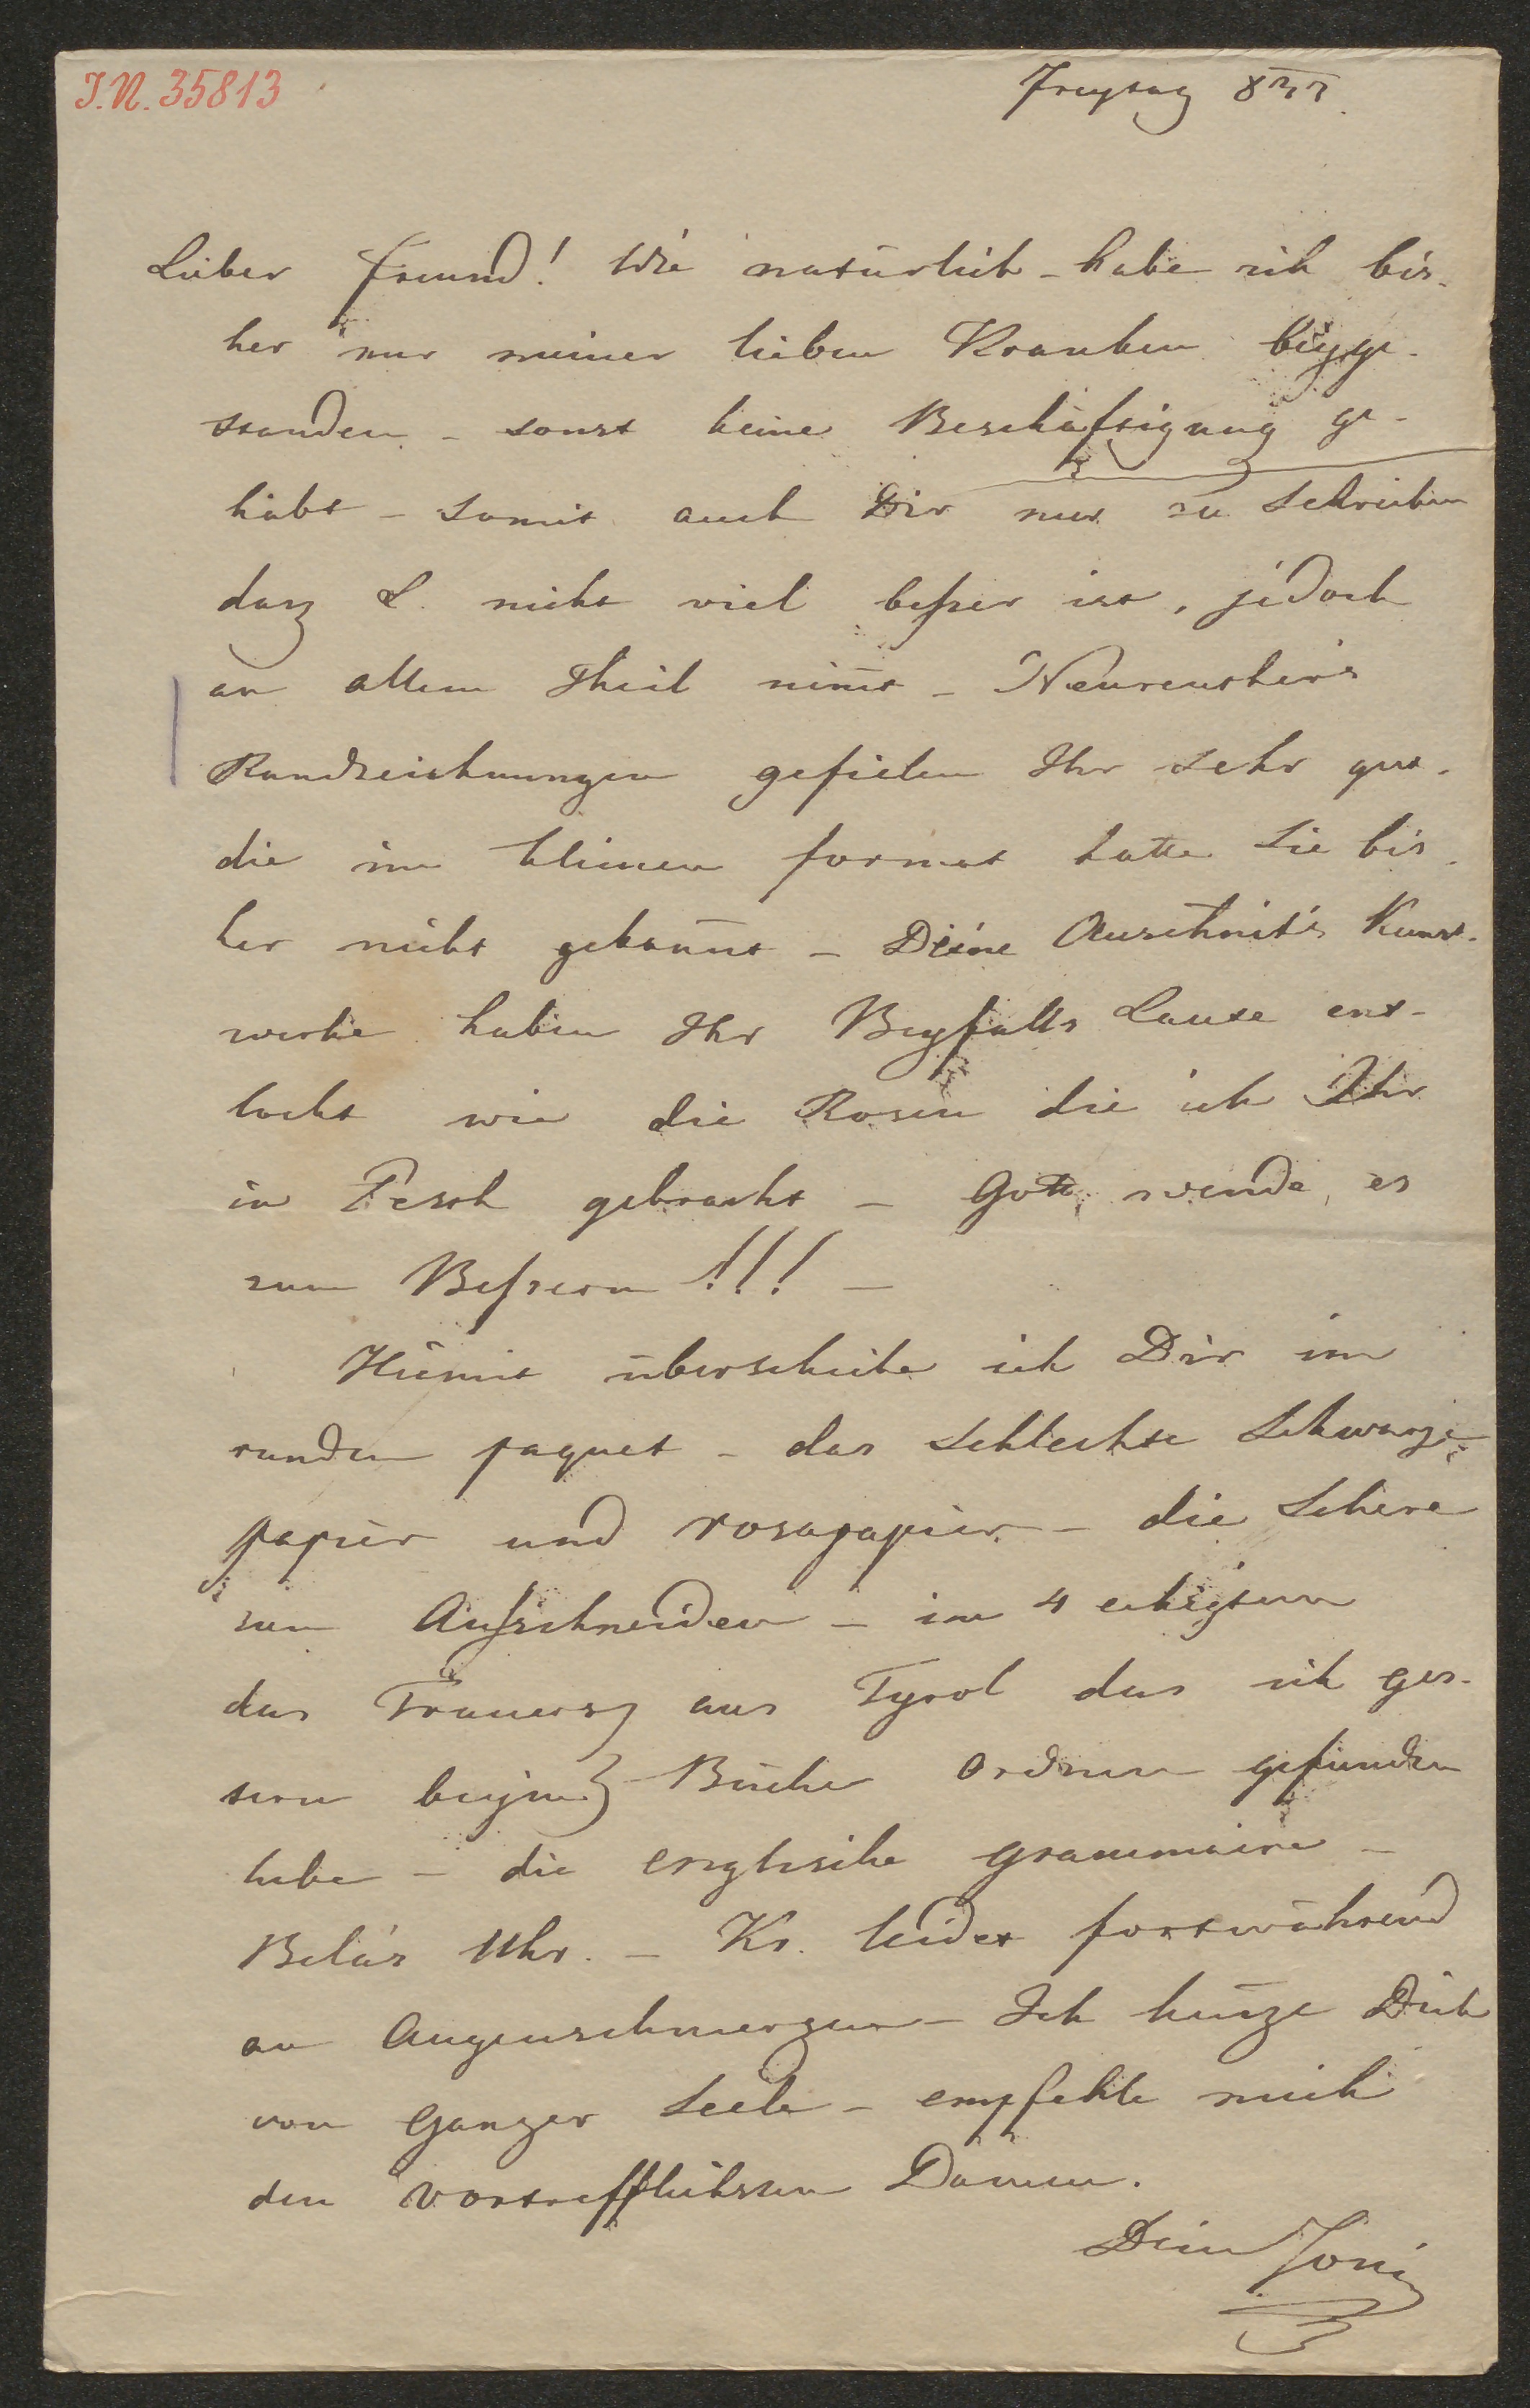 I.N. 35813
Freytag
Lieber Freund! Wie natürlich – habe ich bis-
her nur meiner lieben Kranken beyge-
standen – sonst keine Beschäftigung ge-
habt – somit auch Dir nur zu schreiben
dasz L. nicht viel beßer ist, jedoch
an allem Theil nim̄t – Neureuther's
Randzeichnungen gefielen Ihr sehr gut.
die im kleinen format hatte Sie bis-
her nicht gekan̄nt – Deine Ausschnit's Kunst-
werke haben Ihr Beyfalls Laute ent-
lockt wie die Rosen die ich Ihr
in Pesth gebracht – Gott wende es
zum Beßeren!!! –
Hiemit überschicke ich Dir im
runden paquet – das schlechte Schwarze
papier und rosapapier – die Schere
zum Aufschneiden – im 4 eckigten
das aus Tyrol das ich ges-
tern beym Bücher ordnen gefunden
habe – die englische grammaire –
Bela's Uhr. – Kr. leidet fortwährend
an Augenschmerzen – Ich küsze Dich
von ganzer Seele – empfehle mich
den vortrefflichsten Damen.
Dein Toni